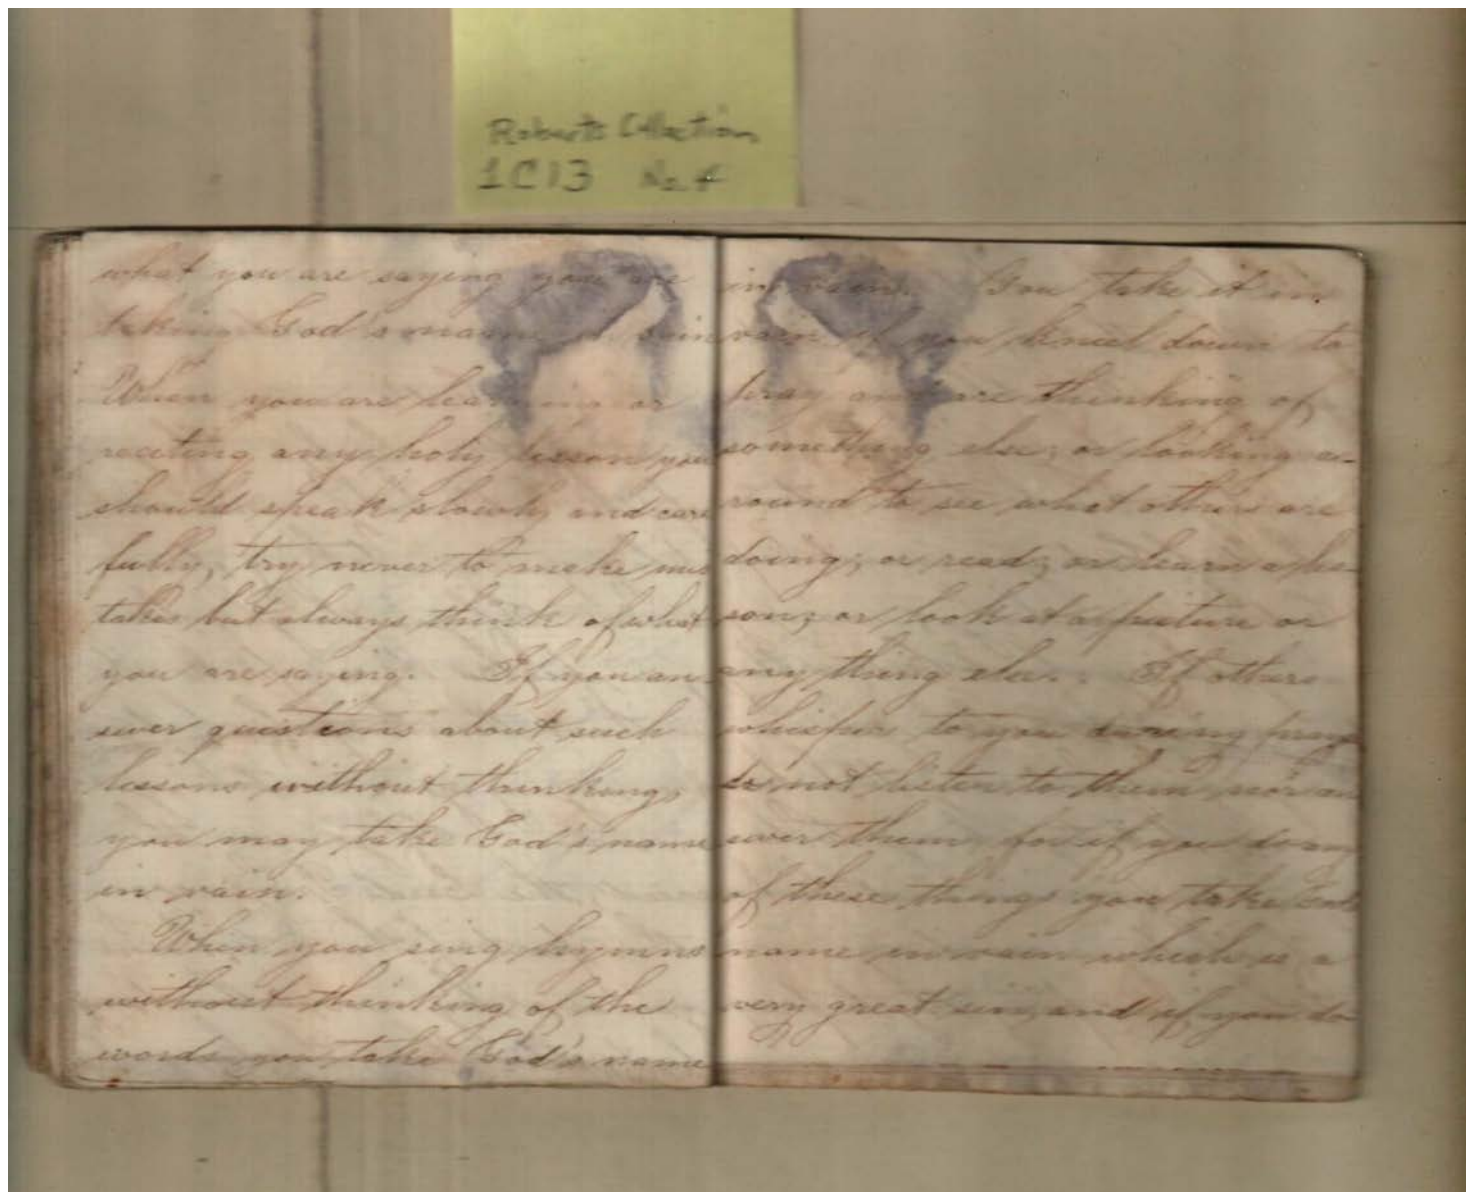 Roberts Collection
1C13 No. 4
what you are saying you are
taking God's name in vain
When you are learning or
reciting any holy lesson you
should speak slowly and care
fully, try never to make mis
takes but always think of what
you are saying. If you an
swer questions about such
lessons without thinking,
you may take God's name
in vain.
When you sing hymns
without thinking of the
words you take God's name
in vain. You take it in
vain if you kneel down to
pray and are thinking of
something else; or looking a-
round to see what others are
doing; or read; or learn a les
son; or look at a picture or
any thing else. If others
whisper to you during pray
do not listen to them nor an
swer them, for if you do any
of these things you take God's
name in vain which is a
very great sin, and if you do